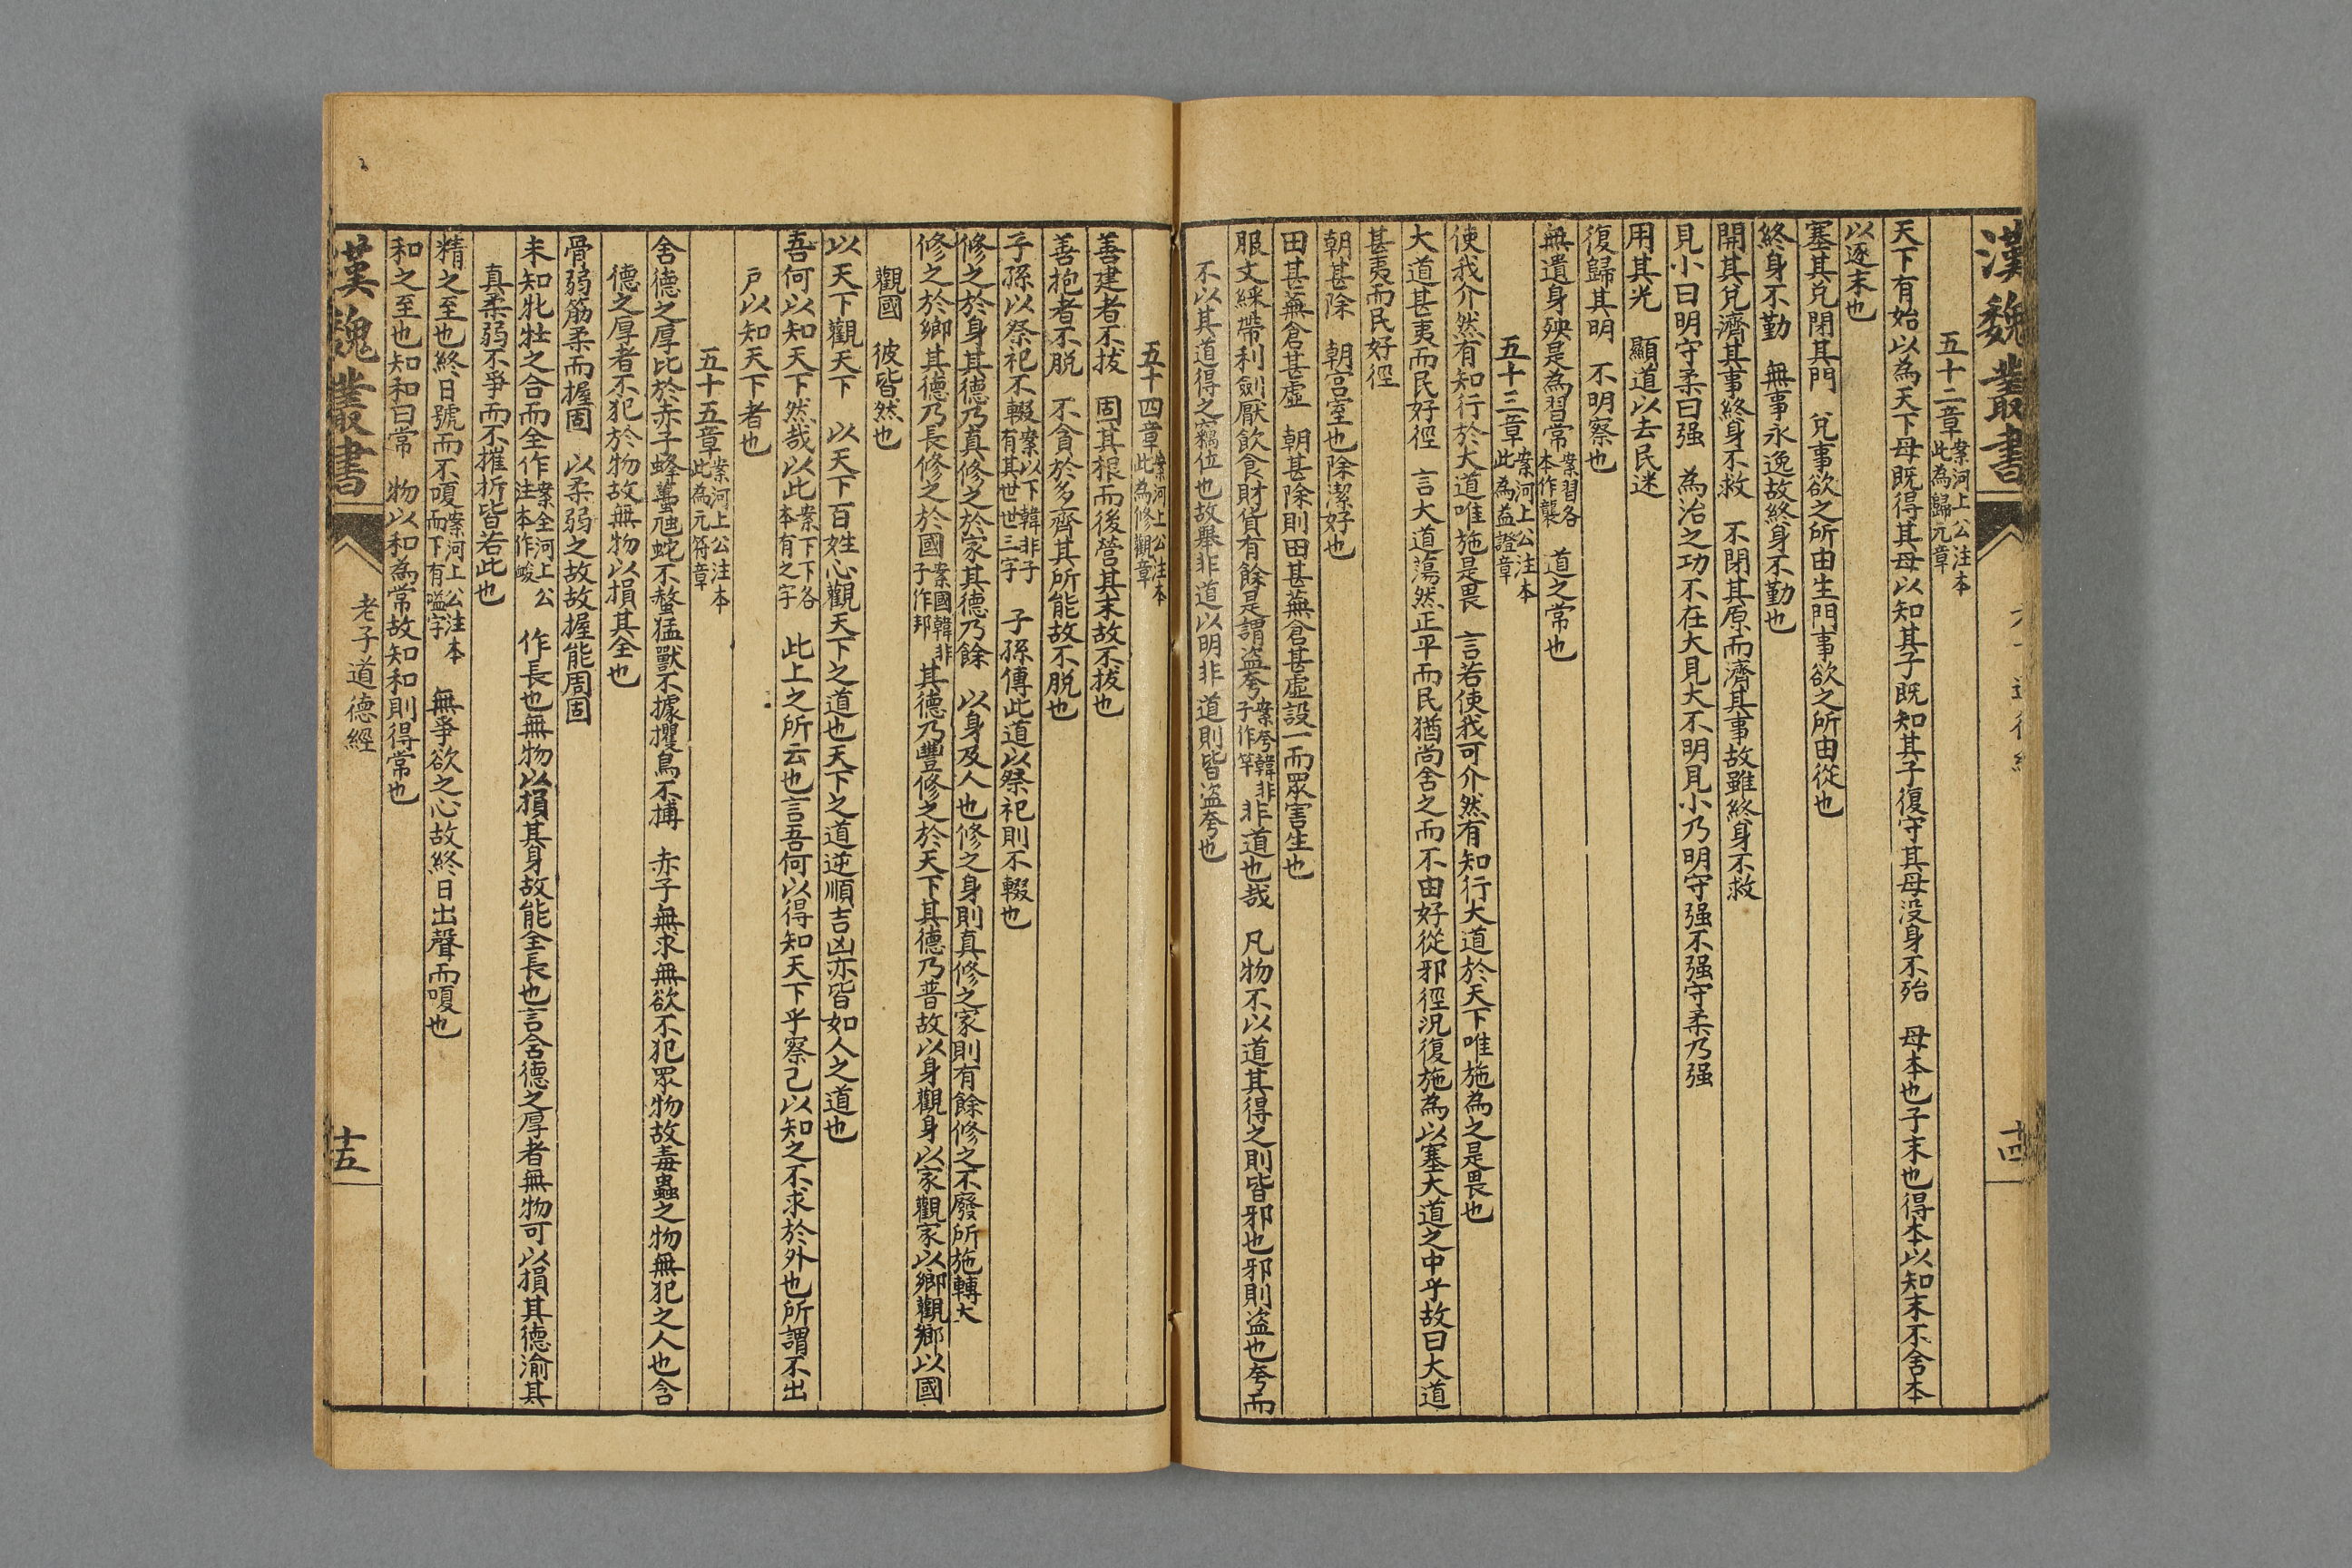 漢魏叢書
五十二章 案河上公注本此為歸元章
天下有始以為天下母既得其母以知其子既知其子復守其母没身不殆 母本也子末也得本以知末不舍本
以逐末也
塞其兌閉其門 兌事欲之所由生門事欲之所由從也
終身不勤 無事永逸故終身不勤也
開其兌濟其事終身不救 不閉其原而濟其事故雖終身不救
見小曰明守柔曰强 為治之功不在大見大不明見小乃明守强不强守柔乃强
用其光 顯道以去民迷
復歸其明 不明察也
無遺身殃是為習常 案習各本作襲 道之常也
五十三章 案河上公注本此為益證章
使我介然有知行於大道唯施是畏 言若使我可介然有知行大道於天下唯施為之是畏也
大道甚夷而民好徑 言大道蕩然正平而民猶尚舍之而不由好從邪徑況復施為以塞大道之中乎故曰大道
甚夷而民好徑
朝甚除 朝宮室也除潔好也
田甚蕪倉甚虛 朝甚除則田甚蕪倉甚虛設一而眾害生也
服文綵帶利劍厭飲食財貨有餘是謂盜夸 案夸韓非子作竽 非道也哉 凡物不以道其得之則皆邪也邪則盜也夸而
不以其道得之竊位也故舉非道以明非道則皆盜夸也
五十四章 案河上公注本此為修觀章
善建者不拔 固其根而後營其末故不拔也
善抱者不脱 不貪於多齊其所能故不脱也
子孫以祭祀不輟 案以下韓非子有其世世三字 子孫傳此道以祭祀則不輟也
修之於身其德乃真修之於家其德乃餘 以身及人也修之身則真修之家則有餘修之不廢所施轉大
修之於鄉其德乃長修之於國 案國韓非子作邦 其德乃豐修之於天下其德乃普故以身觀身以家觀家以鄉觀鄉以國
觀國 彼皆然也
以天下觀天下 以天下百姓心觀天下之道也天下之道逆順吉凶亦皆如人之道也
吾何以知天下然哉以此 案下下各本有之字 此上之所云也言吾何以得知天下乎察己以知之不求於外也所謂不出
戶以知天下者也
五十五章 案河上公注本此為元符章
含德之厚比於赤子蜂蠆虺蛇不螫猛獸不據攫鳥不搏 赤子無求無欲不犯眾物故毒蟲之物無犯之人也含
德之厚者不犯於物故無物以損其全也
骨弱筋柔而握固 以柔弱之故故握能周固
未知牝牡之合而全作 案全河上公注本作峻 作長也無物以損其身故能全長也言含德之厚者無物可以損其德渝其
真柔弱不爭而不摧折皆若此也
精之至也終日號而不嗄 案河上公注本而下有嗌字 無爭欲之心故終日出聲而嗄也
和之至也知和曰常 物以和為常故知和則得常也
漢魏叢書
老子道德經
十五